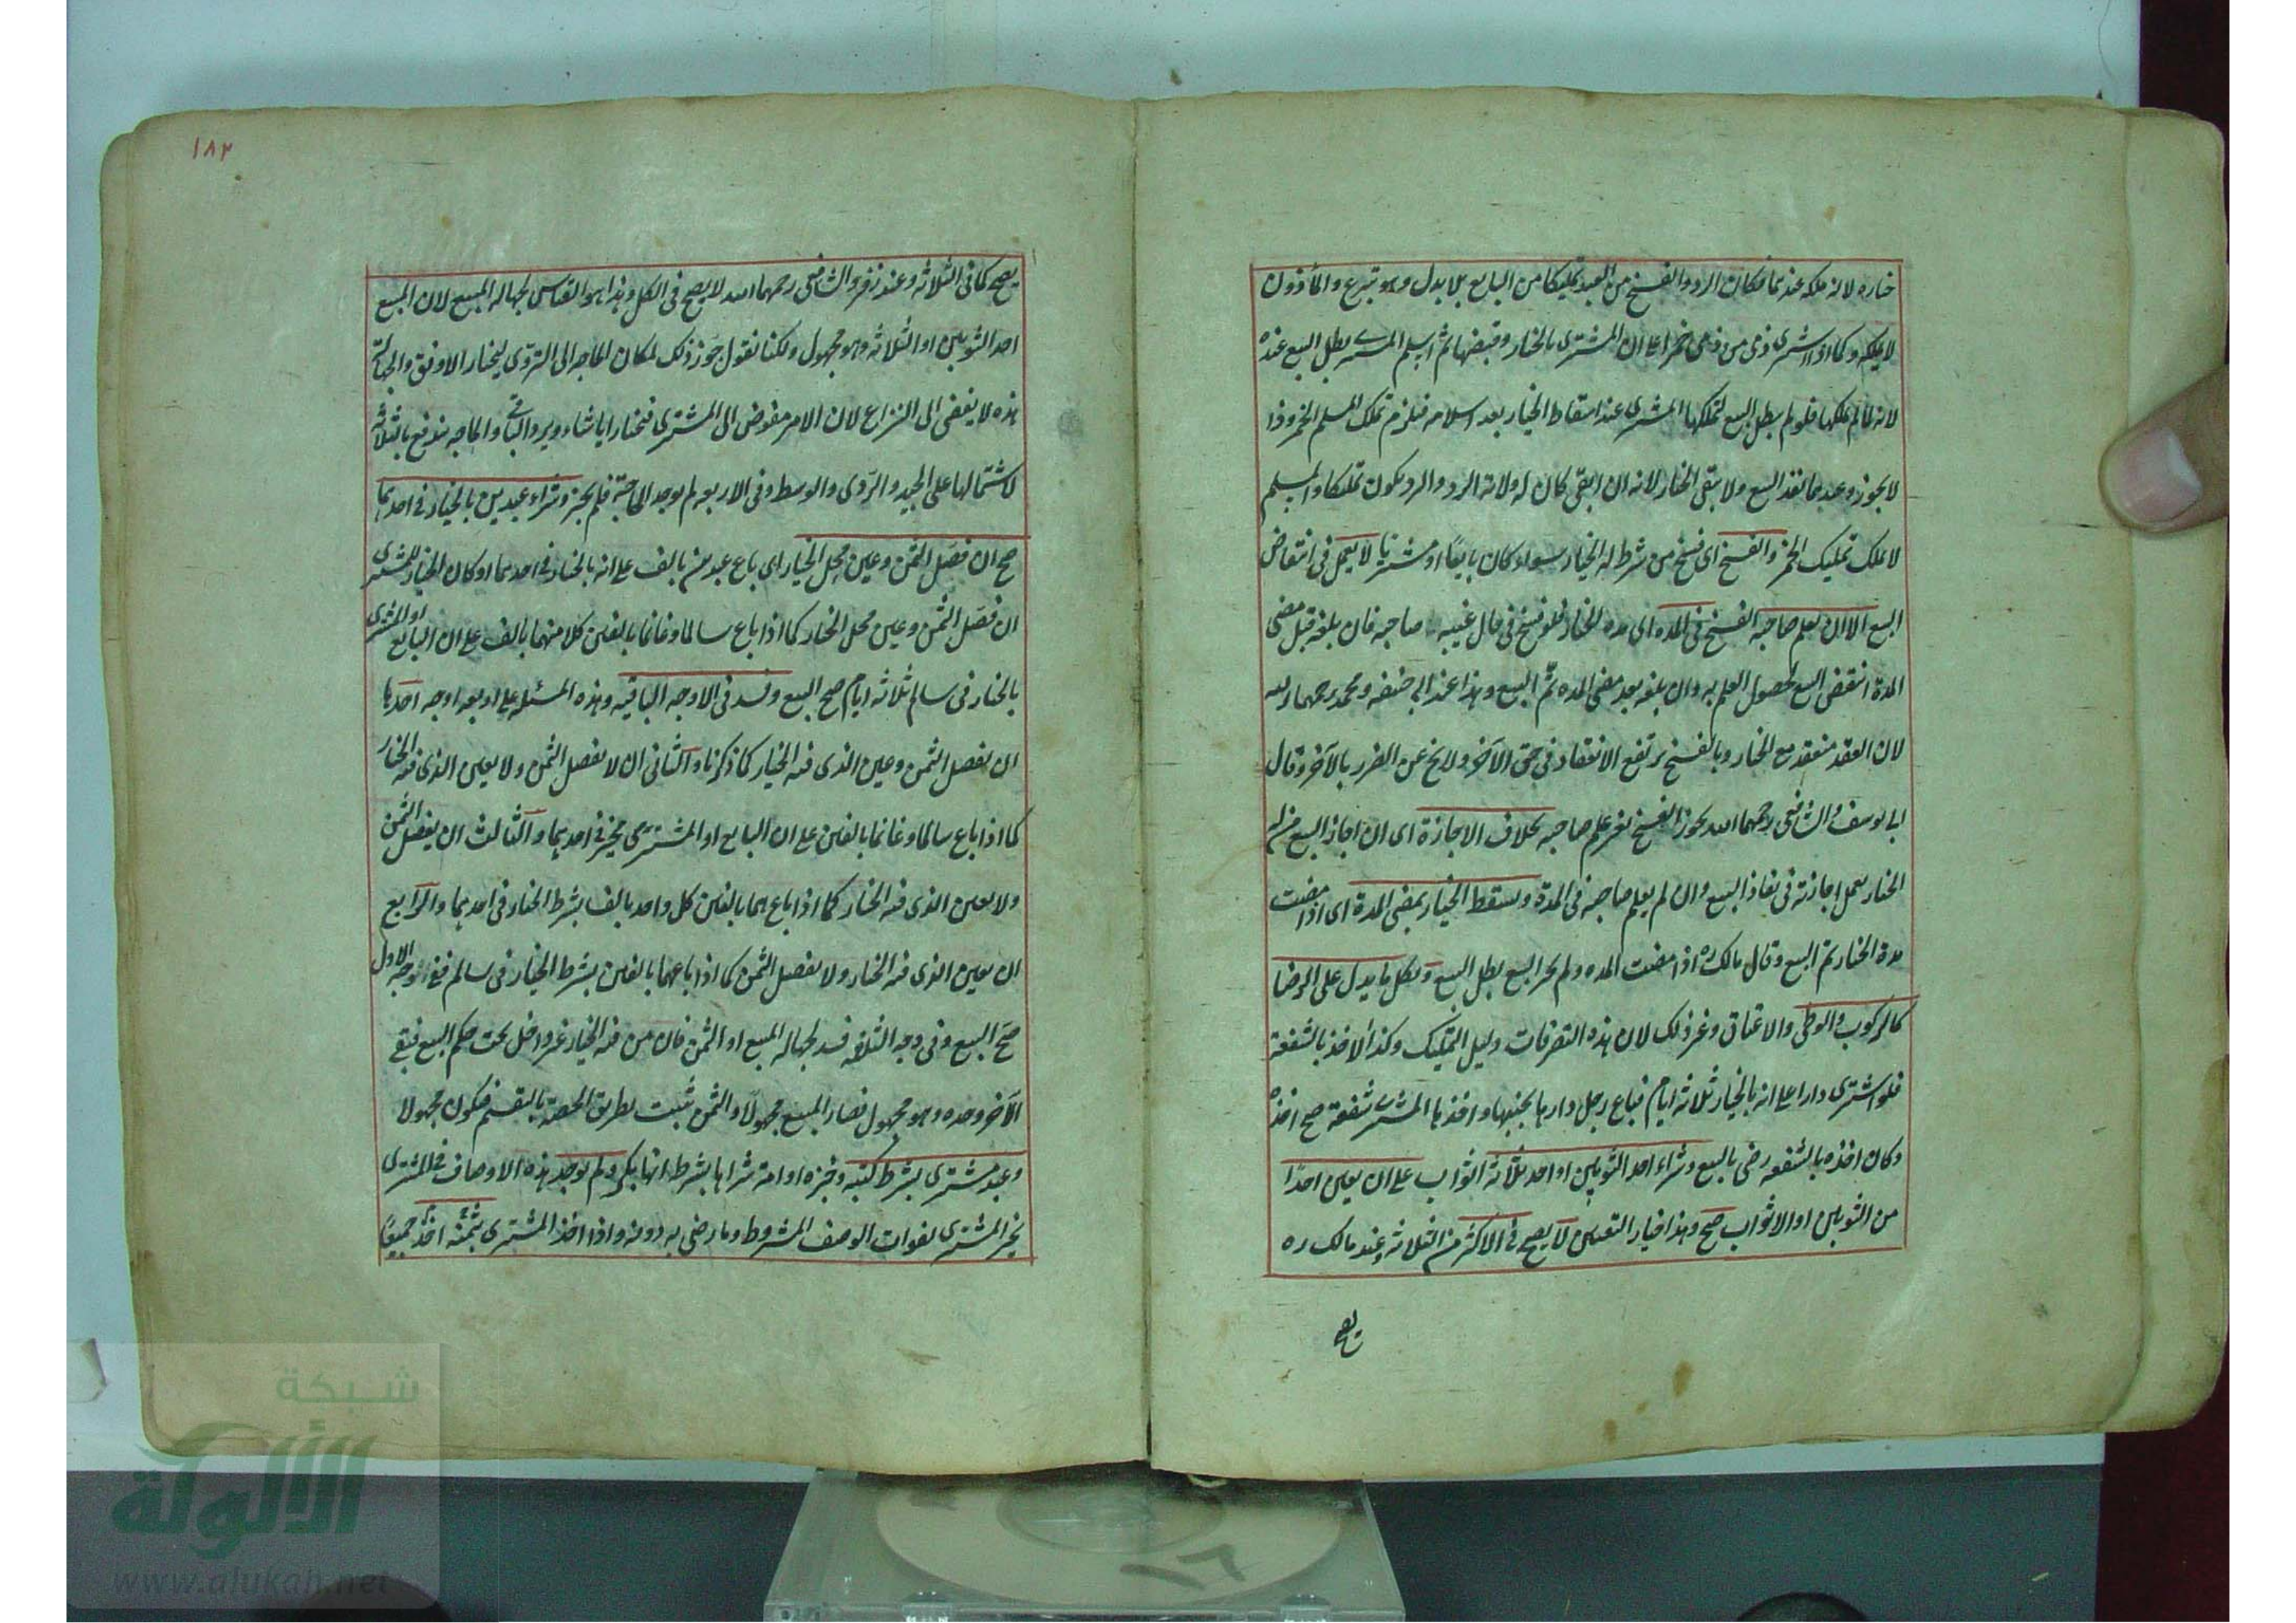 خياره لانه ملكه عندهما فكان الرد والفسخ من العبد تمليكا من البايع بلا بدل وهو تبرع والمأذون
لا يملكه وكما اذا اشترى ذمى من ذمى خمرا على ان المشترى بالخيار وقبضها ثم اسلم المشترى بطل البيع عنده
لانه لما لم يملكها فلو لم يبطل البيع لتملكها المشترى عند اسقاط الخيار بعد اسلامه فيلزم تملك المسلم الخمر وذا
لا يجوز وعندهما نفذ البيع ولا يبقى الخيار لانه ان ابقى كان له ولاية الرد والرد يكون تمليكا والمسلم
لا يملك تمليك الخمر والفسخ اى فسخ من شرط له الخيار سواء كان بايعًا او مشتريا لا يعمل فى انتقاض
البيع الا ان يعلم صاحبه الفسخ فى المدة اى مدة الخيار فلو فسخ فى حال غيبة صاحبه فان بلغه قبل مضى
المدة انتقض البيع لحصول العلم به وان بلغه بعد مضى المده تمّ البيع وهذا عند ابى حنيفه ومحمد رحمهما الله
لان العقد منعقد مع الخيار وبالفسخ يرتفع الانعقاد فى حق الآخر ولا يخ عن الضرر بالآخر وقال
ابى يوسف والشافعى رحمهما الله يجوز الفسخ بغير علم صاحبه بخلاف الاجازة اى ان اجاز البيع من له
الخيار يعمل اجازته فى نفاذ البيع وان لم يعلم صاحبه فى المدة ويسقط الخيار بمضى المدة اى اذا مضت
مدة الخيار تم البيع وقال مالك ره اذا مضت المده ولم يجز البيع بطل البيع وبكل ما يدل على الرضا
كالركوب والوطى والاعتاق وغير ذلك لان هذه التصرفات دليل التمليك وكذا الاخذ بالشفعة
فلو اشترى دارا على انه بالخيار ثلاثة ايام فباع رجل دارها بجنبها واخذها المشترى بشفعة صح اخذه
وكان اخذه بالشفعه رضى بالبيع وشراء احد الثوبين او احد ثلاثة اثواب على ان يعين احدًا
من الثوبين او الاثواب صح وهذا خيار التعيين لا يصح فى الاكثر من الثلاثة وعند مالك ره
يصح
١٨٢
يصح كما فى الثلاثه وعند زفر والشافعى رحمهما الله لا يصح فى الكل وهذا هو القياس لجهالة المبيع لان المبيع
احد الثوبين او الثلاثه وهو مجهول ولكنا نقول جوز ذلك لمكان الحاجه الى التروّى ليختار الاوفق والجهالة
هذه لا يفضى الى النزاع لان الامر مفوض الى المشترى فيختار ايا شاء ويرد الباقى والحاجه يندفع بالثلاثة
لاشتمالها على الجيد والردى والوسط وفى الاربعه لم يوجد الحاجة فلم يجز وشراء عبدين بالخيار فى احدهما
صح ان فصّل الثمن وعين محل الخيار اى باع عبدين بالف على انه بالخيار فى احدهما او كان الخيار للمشترى
ان فصّل الثمن وعين محل الخيار كما اذا باع سالما وغانما بالفين كلا منهما بالف على ان البايع او المشترى
بالخيار فى سالم ثلاثه ايام صح البيع وفسد فى الاوجه الباقيه وهذه المسئله على اربعه اوجه احدها
ان يفصل الثمن وعين الذى فيه الخيار كما ذكرنا والثانى ان لا يفصل الثمن ولا يعين الذى فيه الخيار
كما اذا باع سالما وغانما بالفين على ان البايع او المشترى مخير فى احدهما والثالث ان يفصل الثمن
ولا يعين الذى فيه الخيار كما اذا باعهما بالفين كل واحد بالف بشرط الخيار فى احدهما والرابع
ان يعين الذى فيه الخيار ولا يفصل الثمن كما اذا باعهما بالفين بشرط الخيار فى سالم ففى وجه الاول
صحّ البيع وفى وجه الثلاثه فسد لجهالة المبيع او الثمن فان من فيه الخيار غير داخل تحت حكم البيع فبقى
الآخر وحده وهو مجهول فصار المبيع مجهولا والثمن ثبت بطريق الحصة بالتقسيم فيكون مجهولا
وعبد مشترى بشرط كتبه وخبزه او امة شراها بشرط انها بكر ولم يوجد هذه الاوصاف فى المشترى
يخير المشترى لفوات الوصف المشروط وما رضى به دونه واذا اخذ المشترى بثمنه اخذ جميعًا
شبكة
الألوكة
www.alukah.net